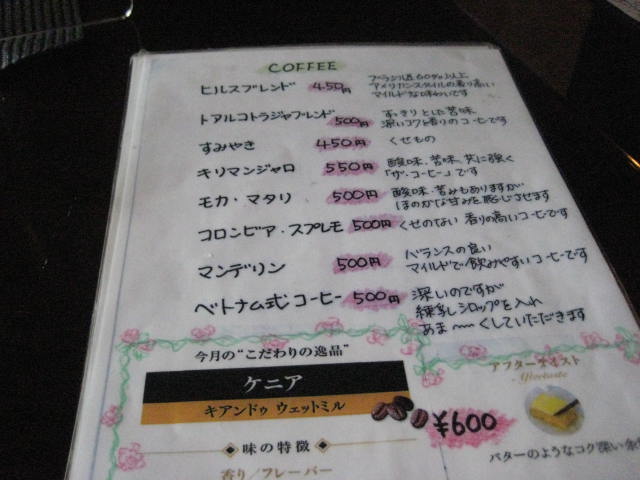 COFFEE
ヒルスブレンド 450円
ブラジル産60%以上
アメリカンスタイルの香り高い
マイルドな味わいです
トアルコトラジャブレンド 500円
すっきりとした苦味
深いコクと香りのコーヒーです
すみやき 450円 くせもの
キリマンジャロ 550円
酸味、苦味、共に強く
「ザ・コーヒー」です
モカ・マタリ 500円
酸味・苦みもありますが
ほのかな甘みを感じさせます
コロンビア・スプレモ 500円 くせのない 香りの高いコーヒーです
マンデリン 500円
バランスの良い
マイルドで飲みやすいコーヒーです
ベトナム式コーヒー 500円
深いのですが
練乳シロップを入れ
あま〜〜くしていただきます
今月の"こだわりの逸品"
ケニア
キアンドゥ ウェットミル
¥600
味の特徴
香り/フレーバー
アフターテイスト
- Aftertaste
バターのようなコク深い余